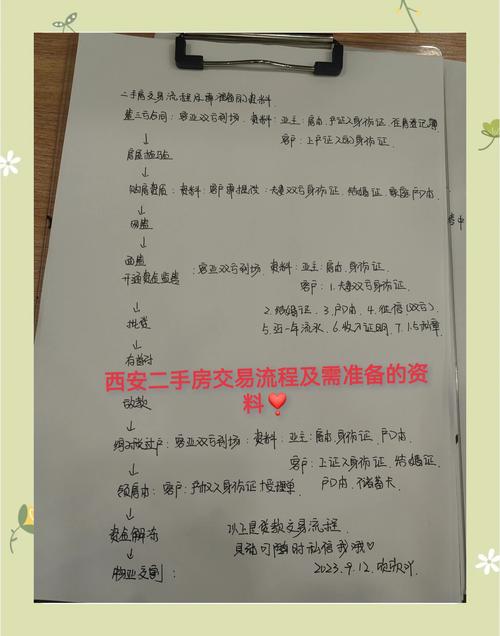 二手房交易流程及需准备的资料
签三方合同：客业双方到场. 资料：业主：房本.产证人身份证.
客户：上产证人的身份证.
↓
房屋核验
↓
购房资质：资料：客户需提供：夫妻双方身份证. 结婚证. 家庭户口本.
↓
网签
↓
面签
开通资金监管：客业双方到场 资料：业主：房本.身份证.
客户：1.夫妻双方身份证.
2.结婚证. 3.户口本. 4.征信(双方)
5.近一年流水. 6.收入证明. 7.
↓
批贷
↓
西安二手房交易流程及需准备的资料❣️
放款
↓
缴税过户：客业双方到场：资料：业主：房本.身份证.户口本
客户：上证人身份证.结婚证.
户口本.储蓄卡
↓
领房本：客户：产权人身份证 受理单
↓
资金解冻
↓
物业交割：
以上是贷款交易流程.
具体可随时私信我哦♡
2023.9.12.